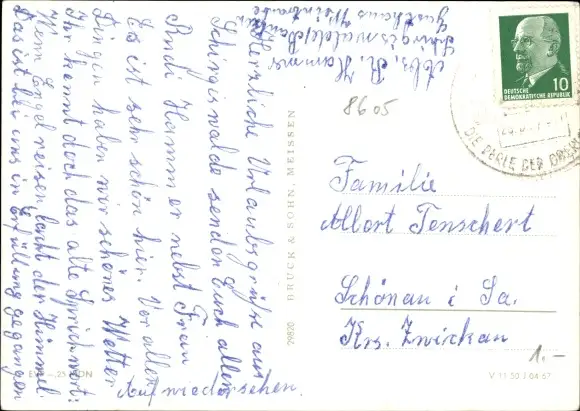 Abs. R. Hammer
Schirgiswalde/Bautzen
Gasthaus Weintraube
Herzliche Urlaubsgrüße aus
Schirgiswalde senden Euch allen
Rudi Hammer nebst Frau
Es ist sehr schön hier. Vor allen
Dingen haben wir schönes Wetter
Ihr kennt doch das alte Sprichwort:
Wenn Engel reisen lacht der Himmel.
Das ist bei uns in Erfüllung gegangen
Auf wiedersehen.
BRÜCK & SOHN, MEISSEN
29820
DEUTSCHE
DEMOKRATISCHE REPUBLIK
10
"DIE PERLE DER
8605
Familie
Albort Tenschert
Schönau i. Sa.
Krs. Zwickau
1.-
V 11 50 J 04 67